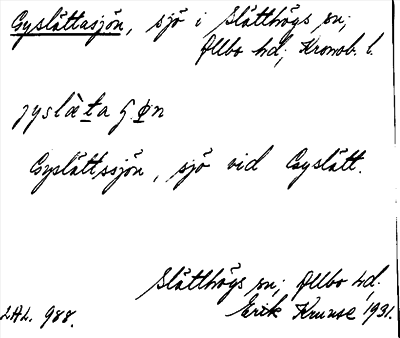 Gyslättasjön, sjö i Slätthögs sn;
Allbo hd; Kronob. l.
Gyslättssjön, sjö vid Gyslätt.
Slätthögs sn; Allbo hd;
L.A.L. 988. Erik Kruuse 1931.